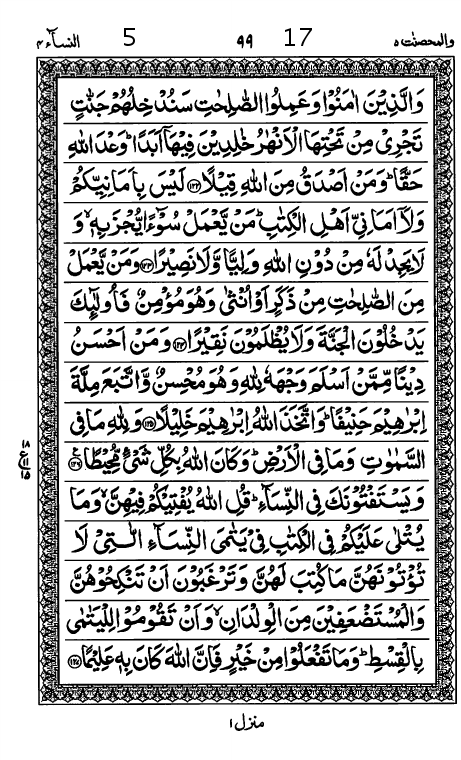 والمحصنت ٥ 17 ٩٩ 5 النسآء ٤
وَالَّذِيْنَ اٰمَنُوْا وَعَمِلُوا الصّٰلِحٰتِ سَنُدْخِلُهُمْ جَنّٰتٍ
تَجْرِيْ مِنْ تَحْتِهَا الْاَنْهٰرُ خٰلِدِيْنَ فِيْهَآ اَبَدًا ؕ وَعْدَ اللّٰهِ
حَقًّا ؕ وَمَنْ اَصْدَقُ مِنَ اللّٰهِ قِيْلًا ﴿۱۲۲﴾ لَيْسَ بِاَمَانِيِّكُمْ
وَلَاۤ اَمَانِيِّ اَهْلِ الْكِتٰبِ ؕ مَنْ يَّعْمَلْ سُوْٓءًا يُّجْزَ بِهٖ ۙ وَ
لَا يَجِدْ لَهٗ مِنْ دُوْنِ اللّٰهِ وَلِيًّا وَّلَا نَصِيْرًا ﴿۱۲۳﴾ وَمَنْ يَّعْمَلْ
مِنَ الصّٰلِحٰتِ مِنْ ذَكَرٍ اَوْ اُنْثٰى وَهُوَ مُؤْمِنٌ فَاُولٰٓئِكَ
يَدْخُلُوْنَ الْجَنَّةَ وَلَا يُظْلَمُوْنَ نَقِيْرًا ﴿۱۲۴﴾ وَمَنْ اَحْسَنُ
دِيْنًا مِّمَّنْ اَسْلَمَ وَجْهَهٗ لِلّٰهِ وَهُوَ مُحْسِنٌ وَّاتَّبَعَ مِلَّةَ
اِبْرٰهِيْمَ حَنِيْفًا ؕ وَاتَّخَذَ اللّٰهُ اِبْرٰهِيْمَ خَلِيْلًا ﴿۱۲۵﴾ وَلِلّٰهِ مَا فِي
السَّمٰوٰتِ وَمَا فِي الْاَرْضِ ؕ وَكَانَ اللّٰهُ بِكُلِّ شَيْءٍ مُّحِيْطًا ﴿۱۲۶﴾
۱۸ ع ۱۱ ۱۵
وَيَسْتَفْتُوْنَكَ فِي النِّسَآءِ ؕ قُلِ اللّٰهُ يُفْتِيْكُمْ فِيْهِنَّ ۙ وَمَا
يُتْلٰى عَلَيْكُمْ فِي الْكِتٰبِ فِيْ يَتٰمَى النِّسَآءِ الّٰتِيْ لَا
تُؤْتُوْنَهُنَّ مَا كُتِبَ لَهُنَّ وَتَرْغَبُوْنَ اَنْ تَنْكِحُوْهُنَّ
وَالْمُسْتَضْعَفِيْنَ مِنَ الْوِلْدَانِ ۙ وَاَنْ تَقُوْمُوْا لِلْيَتٰمٰى
بِالْقِسْطِ ؕ وَمَا تَفْعَلُوْا مِنْ خَيْرٍ فَاِنَّ اللّٰهَ كَانَ بِهٖ عَلِيْمًا ﴿۱۲۷﴾
منزل ۱